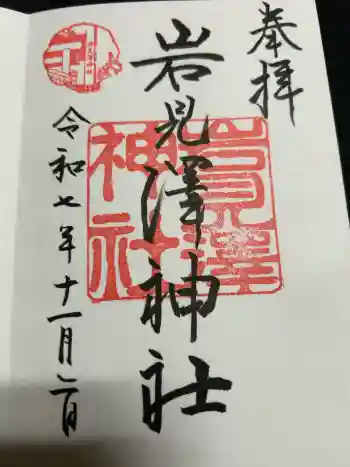 奉拝
岩見澤神社
岩見澤
神社
令和七年十一月二日